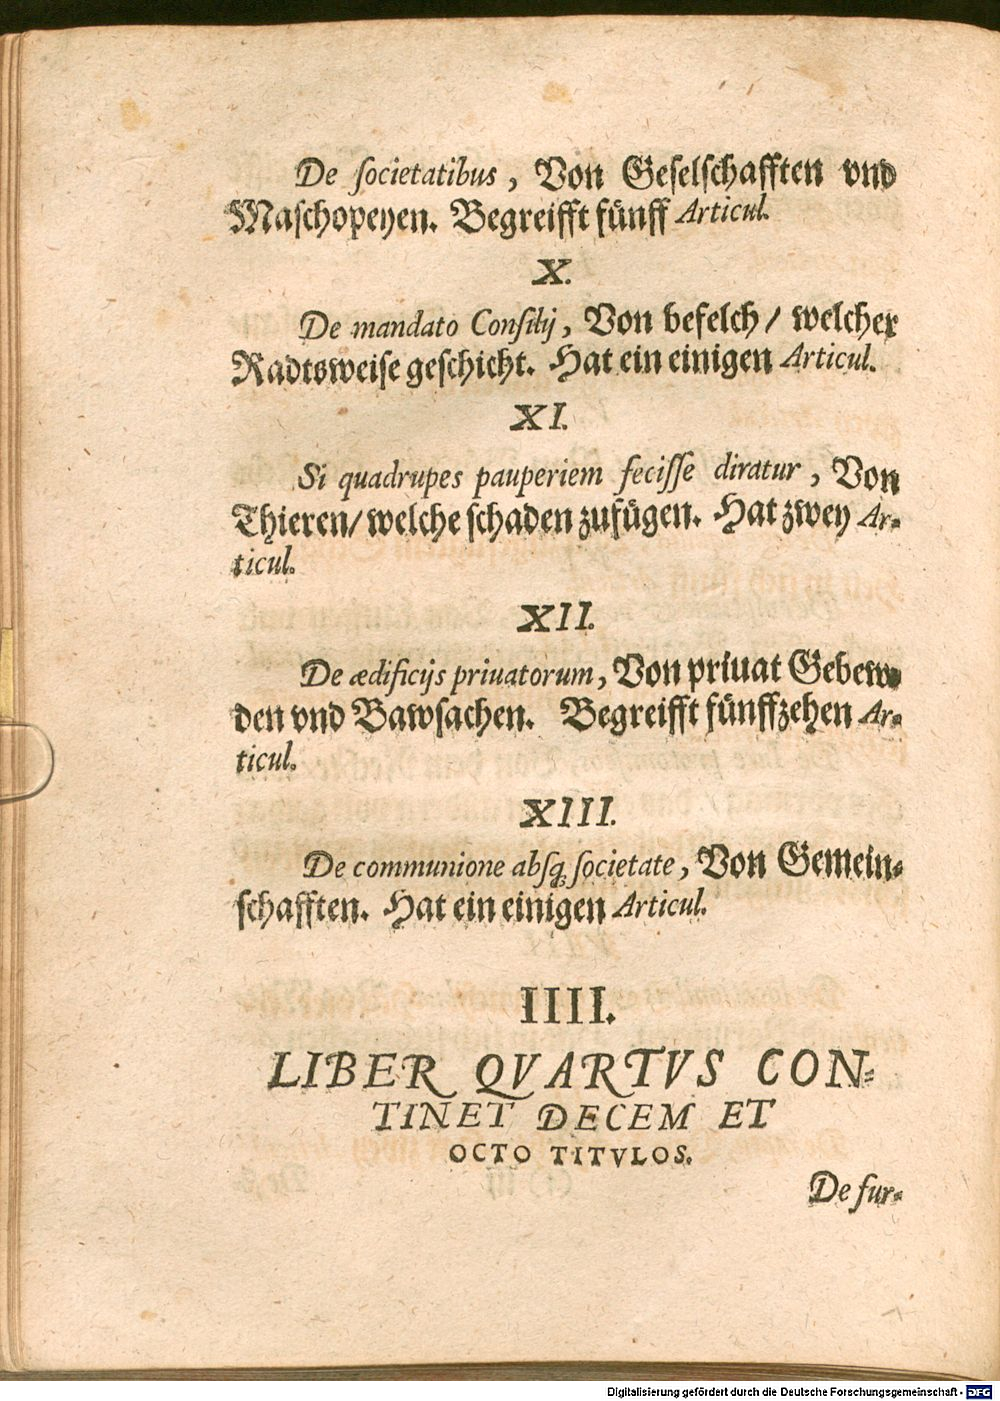 De ſocietatibus, Von Geſelſchafften vnd
Maſchopeyen. Begreifft fünff Articul.
X.
De mandato Conſilij, Von befelch / welcher
Radtsweiſe geſchicht. Hat ein einigen Articul.
XI.
Si quadrupes pauperiem feciſſe diratur, Von
Thieren/ welche ſchaden zufügen. Hat zwey Ar-
ticul.
XII.
De ædificijs priuatorum, Von priuat Gebew-
den vnd Bawſachen. Begreifft fünffzehen Ar-
ticul.
XIII.
De communione abſq; ſocietate, Von Gemein-
ſchafften. Hat ein einigen Articul.
IIII.
LIBER QVARTVS CON-
TINET DECEM ET
OCTO TITVLOS.
De fur-
Digitalisierung gefördert durch die Deutsche Forschungsgemeinschaft - DFG